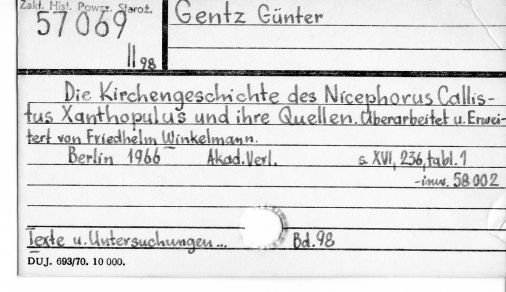 Zakł. Hist. Powsz. Staroż.
57069
II 98
Gentz Günter
Die Kirchengeschichte des Nicephorus Callis-
tus Xanthopulus und ihre Quellen. Überarbeitet u. Erwei-
tert von Friedhelm Winkelmann.
Berlin 1966 Akad. Verl. s. XVI, 236, tabl. 1
-inw. 58002
Texte u. Untersuchungen... Bd. 98
DUJ. 693/70. 10 000.